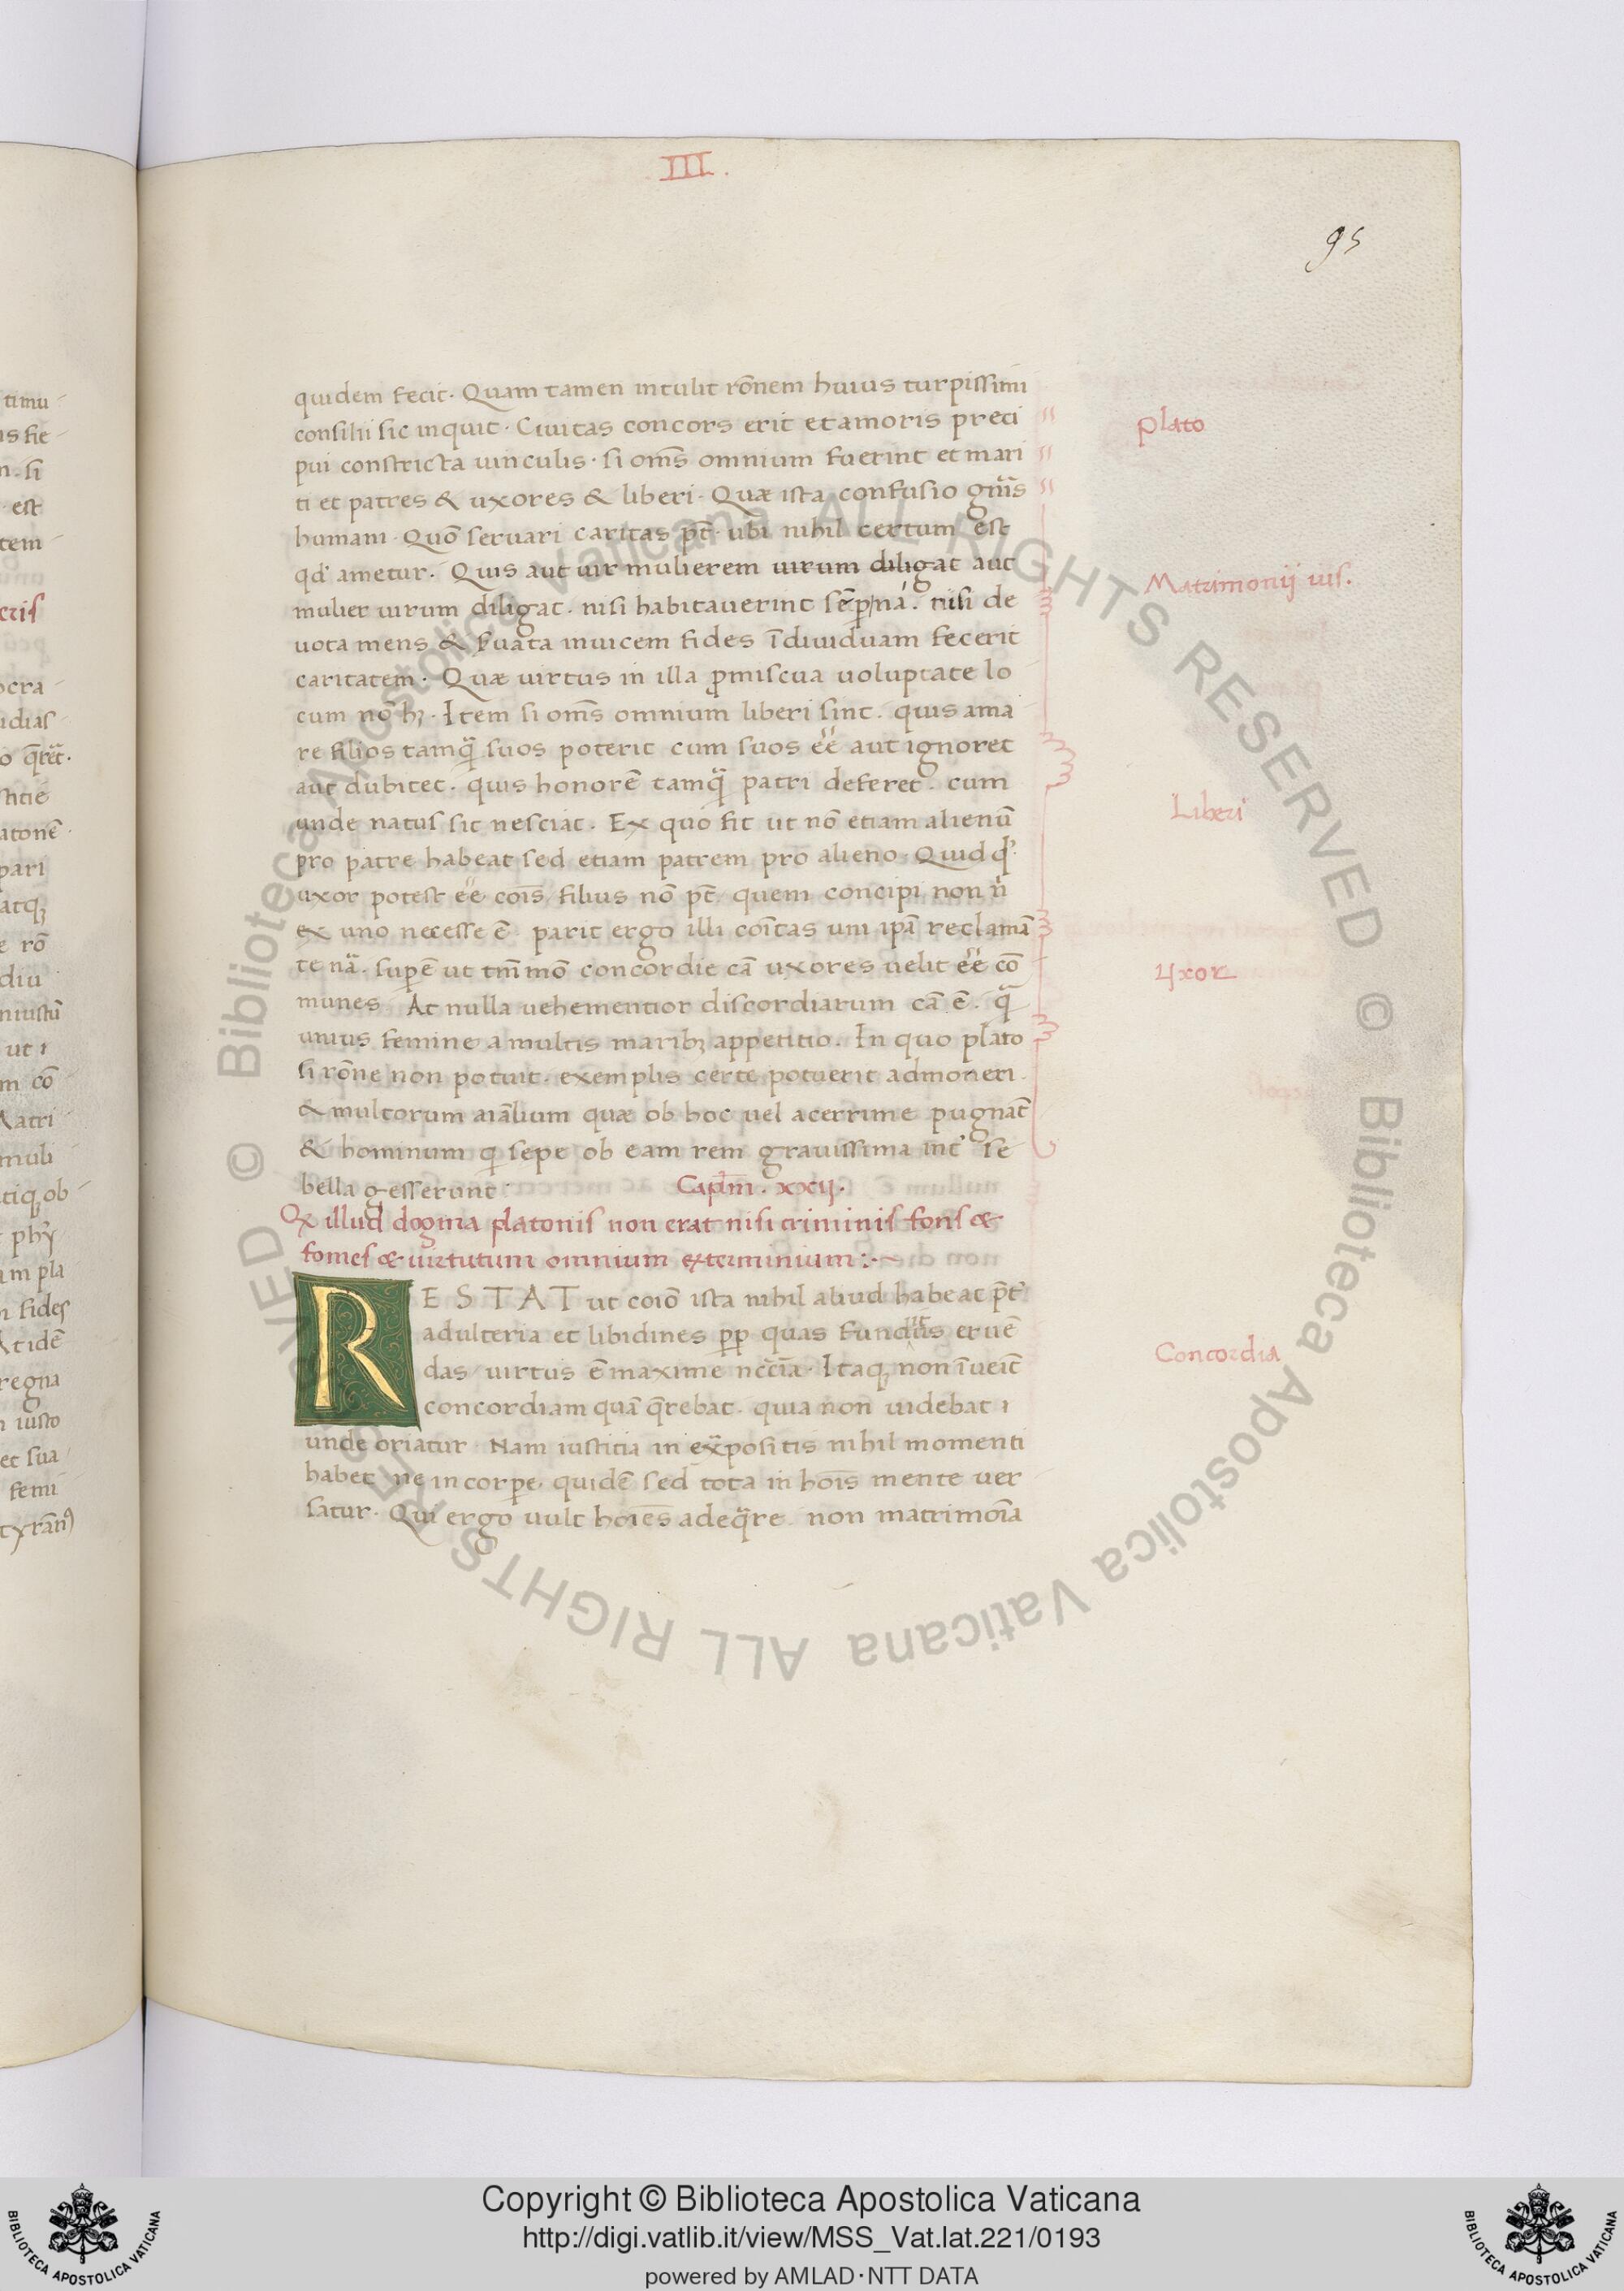 III.
95
quidem fecit. Quam tamen intulit rõnem huius turpissimi
consilii sic inquit. Ciuitas concors erit et amoris preci
pui constricta uinculis. si oms̄ omnium fuerint et mari
ti et patres & uxores & liberi. Quæ ista confusio gn̄is
humani. Quō seruari caritas pt̄. ubi nihil certum est
qd̓ ametur. Quis aut uir mulierem uirum diligat aut
mulier uirum diligat. nisi habitauerint sēp nā. nisi de
uota mens & s̓uata inuicem fides īdiuiduam fecerit
caritatem. Quæ uirtus in illa p̄miscua uoluptate lo
cum nō hꝫ. Item si oms̄ omnium liberi sint. quis ama
re filios tamq̄ suos poterit cum suos ēē aut ignoret
aut dubitet. quis honorē tamq̄ patri deferet. cum
unde natus sit nesciat. Ex quo fit ut nō etiam alienū
pro patre habeat sed etiam patrem pro alieno. Quid q̓.
uxor potest ēē cōis filius nō pt̄ quem concipi non n̓
ex uno necesse ē. parit ergo illi cōitas uni ip̄ā reclamā
te nā. supē ut tm̄mō concordie cā uxores uelit ēē cō
munes. At nulla uehementior discordiarum cā ē. q̄
unius femine a multis maribꝫ appetitio. In quo plato
si rōne non potuit. exemplis certe potuerit admoneri.
& multorum aiālium quæ ob hoc uel acerrime pugnāt
& hominum q̄ sepe ob eam rem grauissima int̓ se
bella gesserunt. Capl̄m. xxij.
Qꝫ illud dogma platonis non erat nisi criminis fons &
fomes & uirtutum omnium exterminium:~
RESTAT ut coiō ista nihil aliud habeat p̄t̓
adulteria et libidines pp̄ quas fundit̓us eruē
das uirtus ē maxime nccīa. Itaqꝫ non īueīt
concordiam quā q̄rebat. quia non uidebat ı
unde oriatur. Nam iustitia in exposi tis nihil momenti
habet ne in corpe. quidē sed tota in hoīs mente uer
satur. Qui ergo uult hoīes adeq̄re. non matrimōīa
plato
Matrimonij uis.
Liberi
Uxor
Concordia
Copyright © Biblioteca Apostolica Vaticana
http://digi.vatlib.it/view/MSS_Vat.lat.221/0193
powered by AMLAD·NTT DATA
BIBLIOTECA APOSTOLICA VATICANA
BIBLIOTECA APOSTOLICA VATICANA
© Biblioteca Apostolica Vaticana ALL RIGHTS RESERVED © Biblioteca Apostolica Vaticana ALL RIGHTS RESERVED